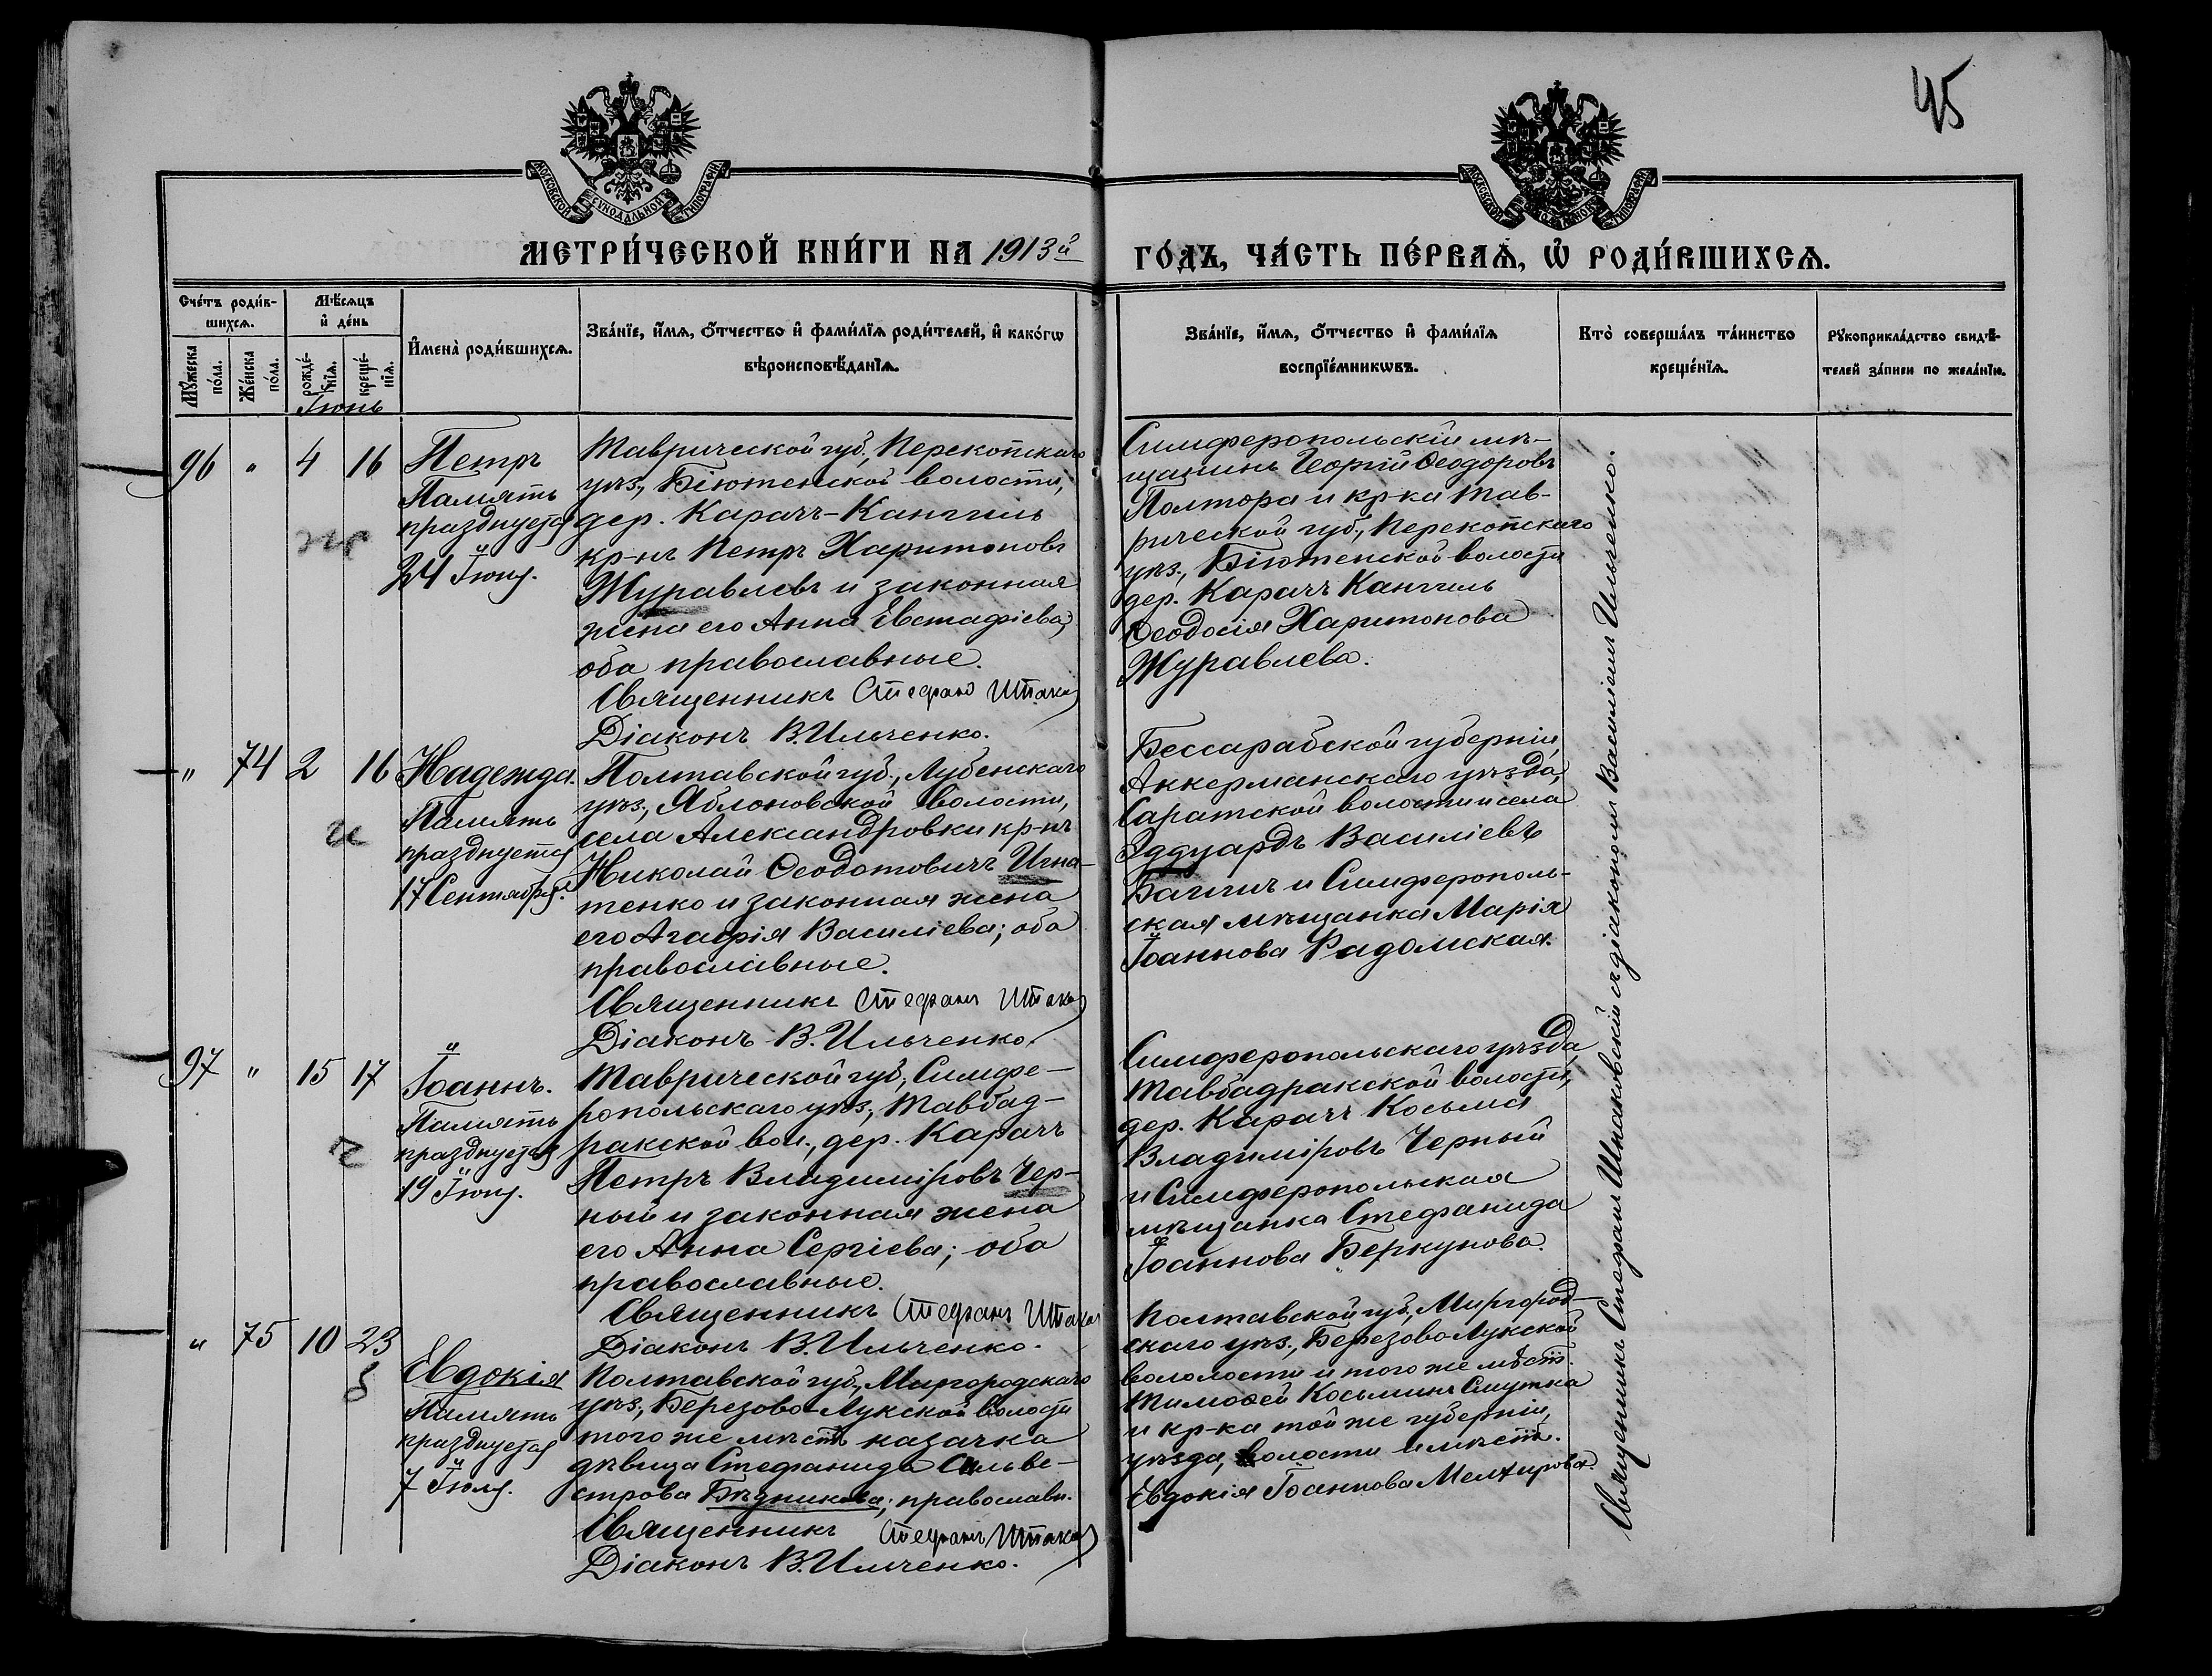 45
МОСКОВСКОЙ СѴНОДАЛЬНОЙ ТИПОГРАФІИ
МОСКОВСКОЙ СѴНОДАЛЬНОЙ ТИПОГРАФІИ
МЕТРИ́ЧЕСКОЙ КНИ́ГИ НА 1913й
ГО́ДЪ, ЧА́СТЬ ПЕ́РВАѦ, Ѡ҆ РОДИ́ВШИХСѦ.
Сче́тъ роди́в-
шихсѧ.
Мѣ́сѧцъ
и҆ де́нь
Мꙋ́жеска
по́ла.
Же́нска
по́ла.
рожде́-
нїѧ.
креще́-
нїѧ.
И҆мена̀ роди́вшихсѧ.
Зва́нїе, и҆́мѧ, ѻ҆́тчество и҆ фами́лїѧ роди́телей, и҆ како́гѡ
вѣроисповѣ́данїѧ.
Зва́нїе, и҆́мѧ, ѻ҆́тчество и҆ фами́лїѧ
воспрїе́мникѡвъ.
Кто̀ соверша́лъ та́инство
креще́нїѧ.
Рꙋкоприкла́дство свидѣ́-
телей за́писи по жела́нїю.
Іюнь
96 " 4 16
Петръ
Память
празднуется
24 Іюня.
Таврической губ., Перекопскаго
уѣз., Біютенской волости,
дер. Карачъ-Кангиль
кр-нъ Петръ Харитоновъ
Журавлевъ и законная
жена его Анна Евстафіева;
оба православные.
Священникъ Стефанъ
Діаконъ В. Ильченко.
Симферопольскій мѣ-
щанинъ Георгій Ѳеодоровъ
Полтора и кр-ка Тав-
рической губ., Перекопскаго
уѣз., Біютенской волости
дер. Карачъ Кангиль
Ѳеодосія Харитонова
Журавлева.
" 74 2 16
Надежда.
Память
празднуется
17 Сентября.
Полтавской губ., Лубенскаго
уѣз., Яблоновской волости,
села Александровки кр-нъ
Николай Ѳеодотовичъ Игна-
тенко и законная жена
его Агафія Василіева; оба
православные.
Священникъ Стефанъ
Діаконъ В. Ильченко.
Бессарабской губерніи,
Аккерманскаго уѣзда,
Саратской волости и села
Эддуардъ Василіевъ
и Симферополь-
ская мѣщанка Марія
Іоаннова Радомская.
97 " 15 17
Іоаннъ.
Память
празднуется
19 Іюня.
Таврической губ., Симфе-
ропольскаго уѣз., Тавбад-
ракской вол., дер. Карачъ
Петръ Владиміровъ Чер-
ный и законная жена
его Анна Сергіева; оба
православные.
Священникъ Стефанъ
Діаконъ В. Ильченко.
Симферопольскаго уѣзда,
Тавбадракской волости,
дер. Карачъ Косьма
Владиміровъ Черный
и Симферопольская
мѣщанка Стефанида
Іоаннова Беркунова.
" 75 10 23
Евдокія
Память
празднуется
7 Іюля.
Полтавской губ., Миргородскаго
уѣз., Березово-Лукской волости
того же мѣст. казачка
дѣвица Стефанида Сильве-
строва Бѣдникова; православн.
Священникъ Стефанъ
Діаконъ В. Ильченко.
Полтавской губ., Миргород-
скаго уѣз., Березово Лукской
вололости и того же мѣст.
Тимоѳей Косьминъ Смутка
и кр-ка той же губерніи,
уѣзда, волости и мѣст.
Евдокія Іоаннова
Священникъ Стефанъ Шпаковскій съ діакономъ Василіемъ Ильченко.